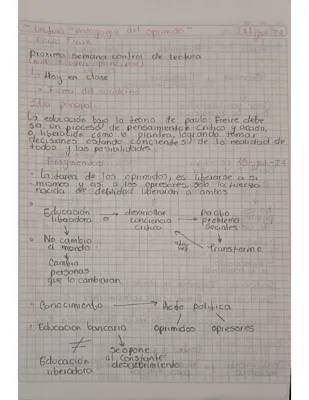 Lectura "Pedagogia del oprimido"
Paulo Freire
proxima semana control de lectura
Hoy en clase
Idea principal
La educación bajo la teoria de paulo Freire debe
ser un proceso de pensamiento critico y acción,
o liberadora como el plantea, logrando tomar
decisiones estando conciende de la realidad de
todos y las posibilidades.
La tarea de los oprimidos es liberarse a si
mismos y asi a los opresores solo la fuerza
nacida de debilidad liberaran a ambos
Educación liberadora → desarrollar conciencia critica → problemas sociales
Transforme
No cambia el mundo
Cambia personas que lo cambiaran
Conocimiento → Acto politico
Educacion bancaria oprimidos opresores
≠ se opone al constante descubrimiento
Educación liberadora